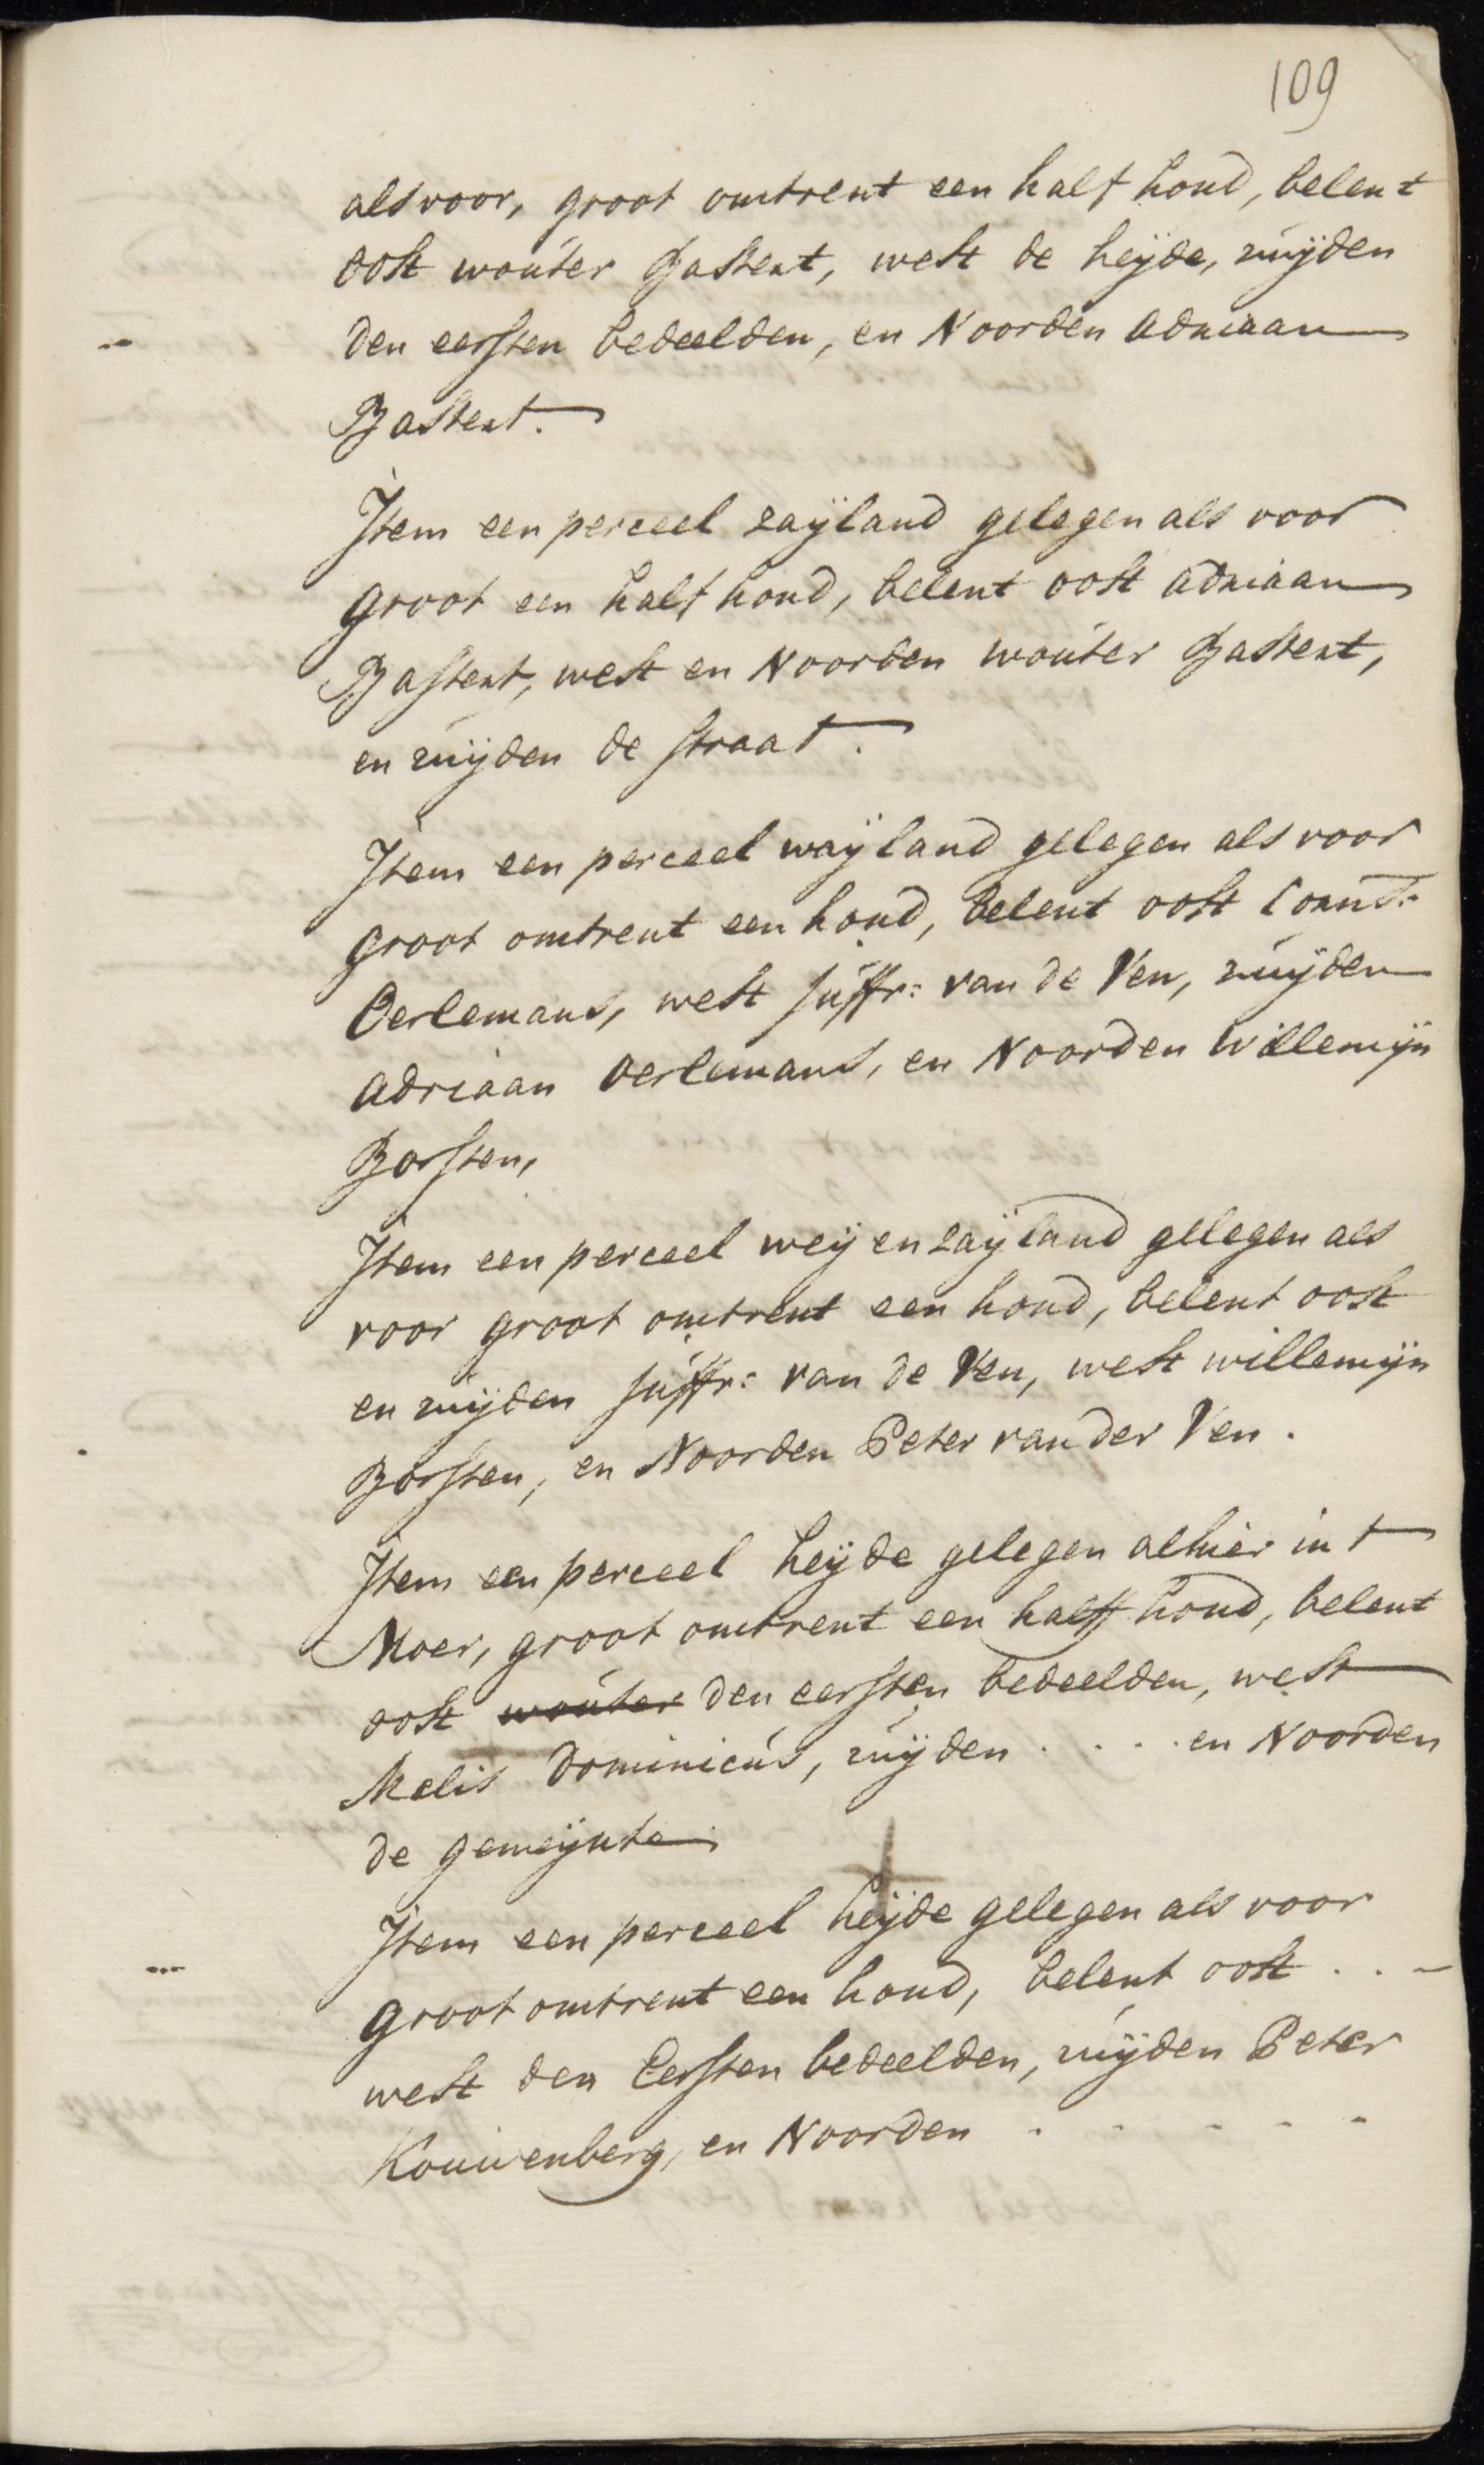 109
als voor, groot omtrent een half hond, belent
oost wouter Bastert, west de heijde, zuijden
den eersten bedeelden, en Noorden Adriaan
Bastert.
Item een perceel zaijland gelegen als voor
groot een half hond, belent oost Adriaan
Bastert, west en Noorden wouter Bastert,
en zuijden de straat.
Item een perceel waijland gelegen als voor
groot omtrent een hond, belent oost Corns:
Oerlemans, west Juffr: van de Ven, zuijden
Adriaan Oerlemans, en Noorden Willemijn
Borsten,
Item een perceel weij en zaijland gelegen als
voor groot omtrent een hond, belent oost
en zuijden Juffr: van de Ven, west willemijn
Borsten, en Noorden Peter van der Ven.
Item een perceel heijde gelegen alhier in t
Moer, groot omtrent een halff hond, belent
oost wouter den eersten bedeelden, west
Melis Dominicus, zuijden . . . . en Noorden
de gemeijnte
Item een perceel heijde gelegen als voor
groot omtrent een hond, belent oost . . -
west den Eersten bedeelden, zuijden Peter
Kouwenberg, en Noorden - - - - -